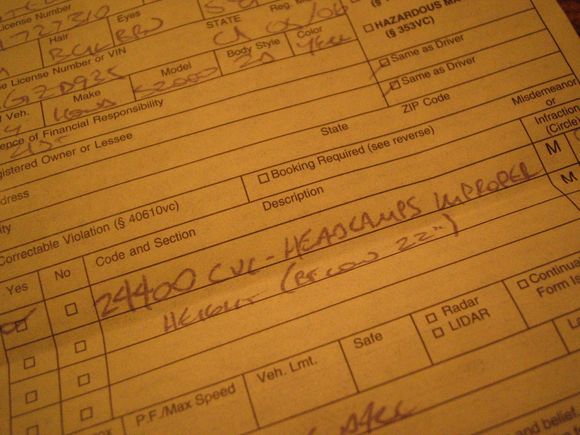 License Number
STATE
Hair
Eyes
BRN
CA 05/06
License Number or VIN
Body Style
Color
□ HAZARDOUS MA
(§ 353VC)
of Veh.
Make
Model
HONDA
S2000
2D
YELL
Same as Driver
ence of Financial Responsibility
Same as Driver
gistered Owner or Lessee
ddress
State
ZIP Code
Misdemeanor
or
Infraction
(Circle)
□ Booking Required (see reverse)
Correctable Violation (§ 40610vc)
Yes
No
Code and Section
Description
M
24400 CVC - HEADLAMPS IMPROPER
M
HEIGHT (BELOW 22")
□ Continua
Form Is
□ Radar
□ LIDAR
P.F./Max Speed
Veh. Lmt.
Safe
and belief